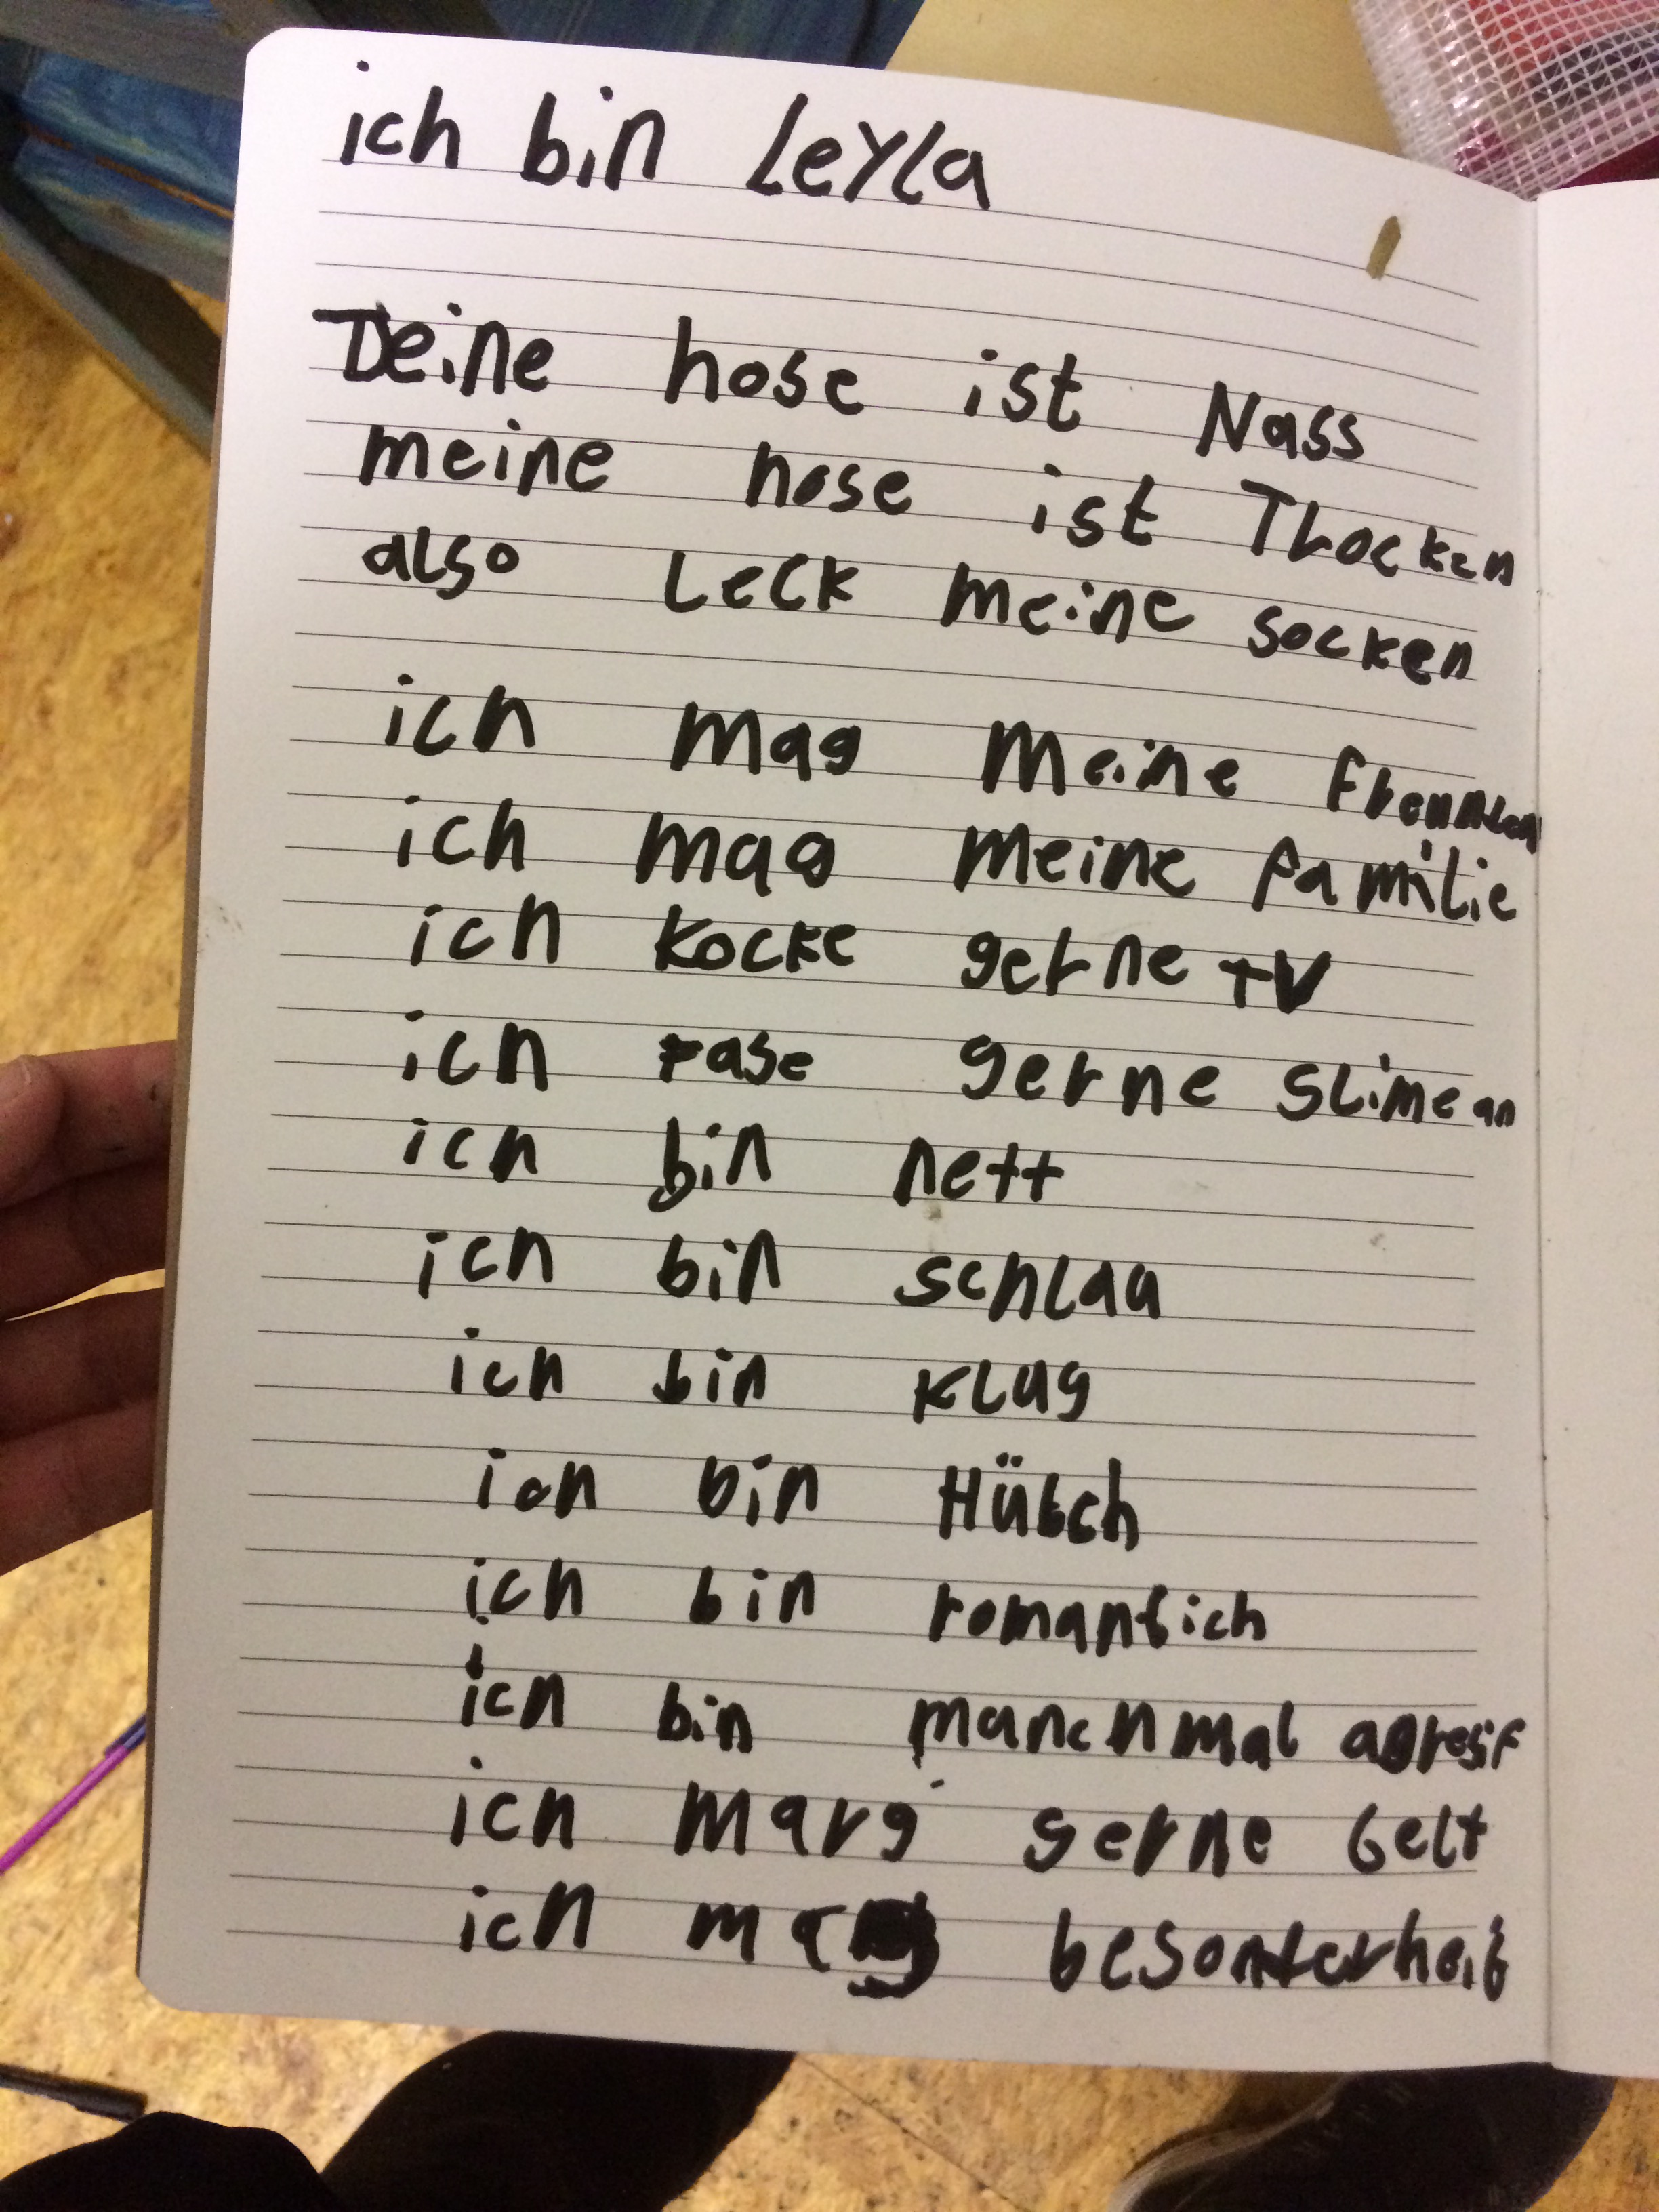 ich bin Leyla
Deine hose ist Nass
meine hose ist Trocken
also Leck meine socken
ich mag meine freunden
ich mag meine familie
ich kocke gerne TV
ich fase gerne SLime an
ich bin nett
ich bin schlau
ich bin klug
ich bin Hübch
ich bin romantich
ich bin manchmal agresif
ich marg gerne Gelt
ich mag besonterheit